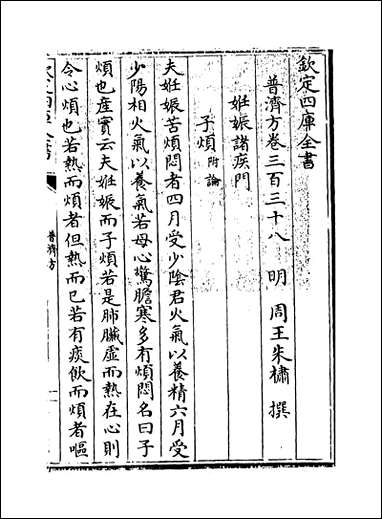 欽定四庫全書
普濟方卷三百三十八 明 周王朱橚 撰
妊娠諸疾門
子煩附論
夫妊娠苦煩悶者四月受少陰君火氣以養精六月受
少陽相火氣以養氣若母心驚膽寒多有煩悶名曰子
煩也產寶云夫妊娠而子煩若是肺臟虛而熱在心則
令心煩也若熱而煩者但熱而已若有痰飲而煩者嘔
普濟方